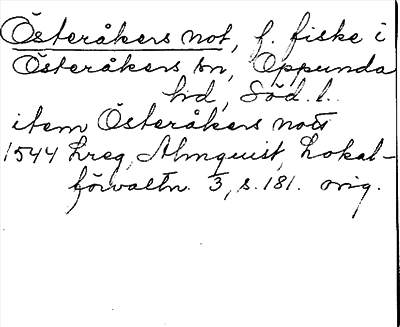 Österåkers not, f. fiske i
Österåkers sn, Oppunda
hd, Söd. l.
item Österåkers nott
1544 Lreg, Almquist, Lokal-
förvaltn. 3, s. 181. orig.